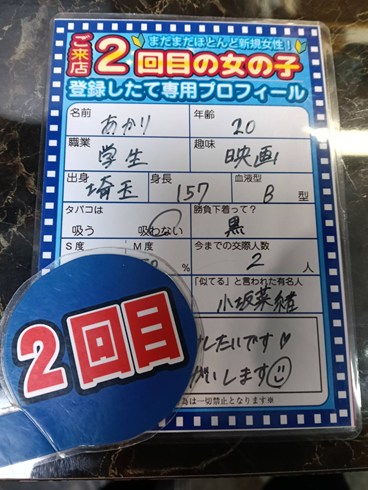 まだまだほとんど新規女性！
ご来店
2回目の女の子
登録したて専用プロフィール
名前 あかり 年齢 20
職業 学生 趣味 映画
出身 埼玉 身長 157 血液型 B 型
タバコは 吸う 吸わない
勝負下着って? 黒
S度 M度 %
今までの交際人数 2 人
「似てる」と言われた有名人
小坂菜緒
2回目
したいです♡
します☺
為は一切禁止となります※